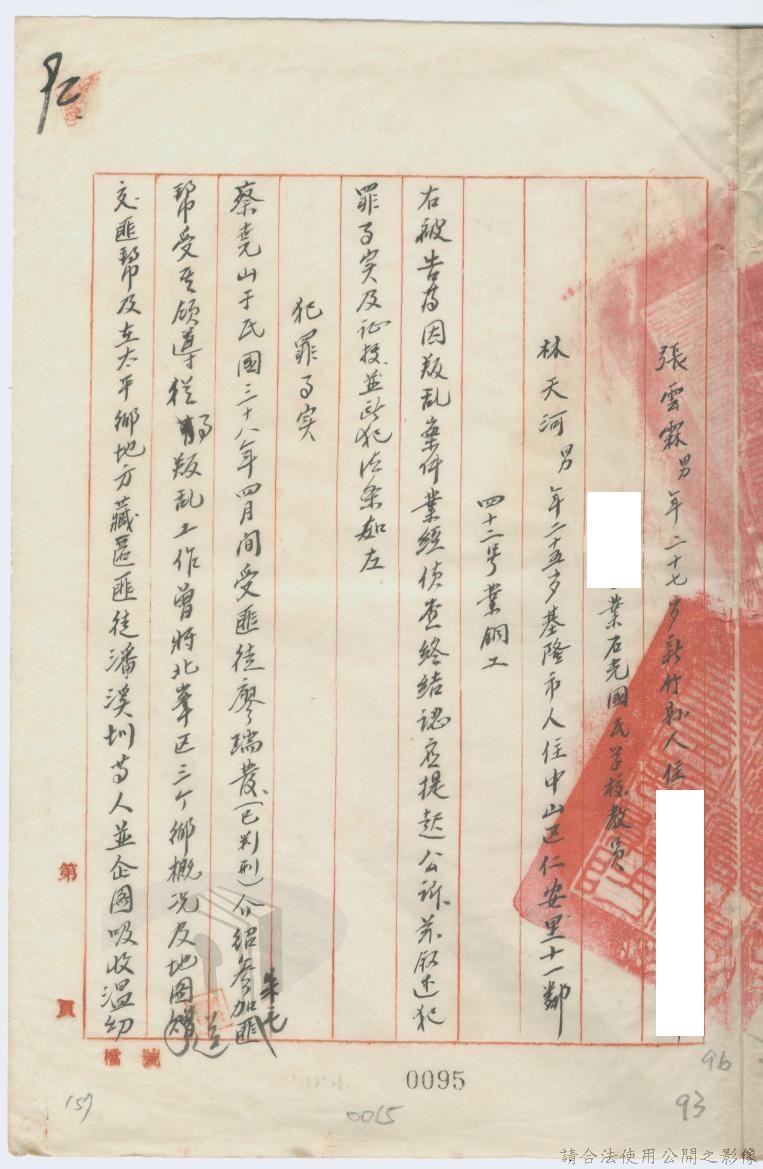 張雲霖男年二十七岁新竹县人住
業石光國民学校教員
林天河男年二十五岁基隆市人住中山区仁安里十一鄰
四十二号業銅工
右被告等因叛乱案件業經侦查終結認应提起公訴茲叙述犯
罪事实及证据並所犯法条如左
犯罪事实
蔡尭山于民國三十八年四月间受匪徒廖瑞發(已判刑)介紹參加朱毛匪
幫受其領導從事叛乱工作曾將北峯区三个鄉概况及地图送
交匪幫及在太平鄉地方藏匿匪徒潘溪圳等人並企图吸收温幼
第 頁
檔 號
0095
0015
96
93
157
請合法使用公開之影像